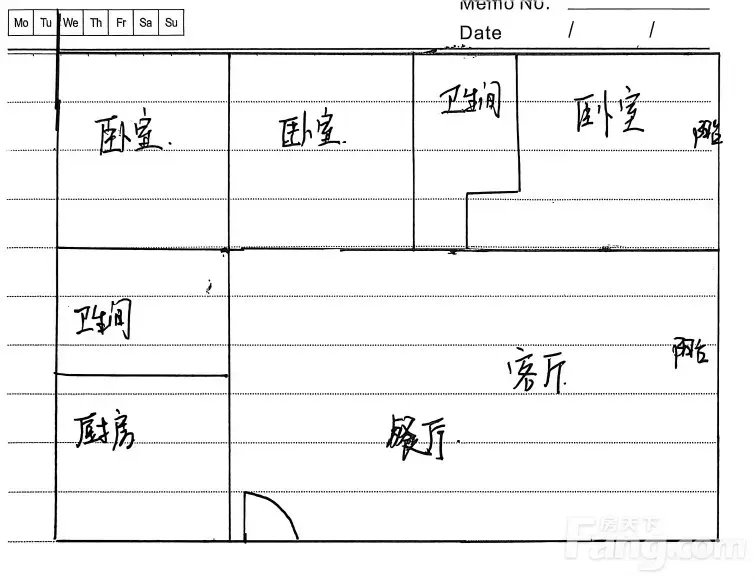 Memo No.
Mo Tu We Th Fr Sa Su
Date / /
卧室.
卧室.
卫生间
卧室
阳台
卫生间
客厅
阳台
厨房
餐厅.
房天下
Fang.com